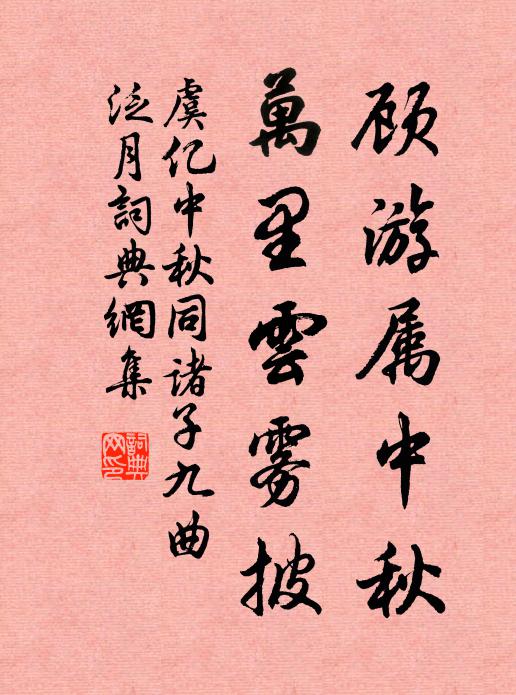 顾游属中秋
萬里雲雾披
虞亿中秋同诸子九曲
泛月詞典網集
詞典網印